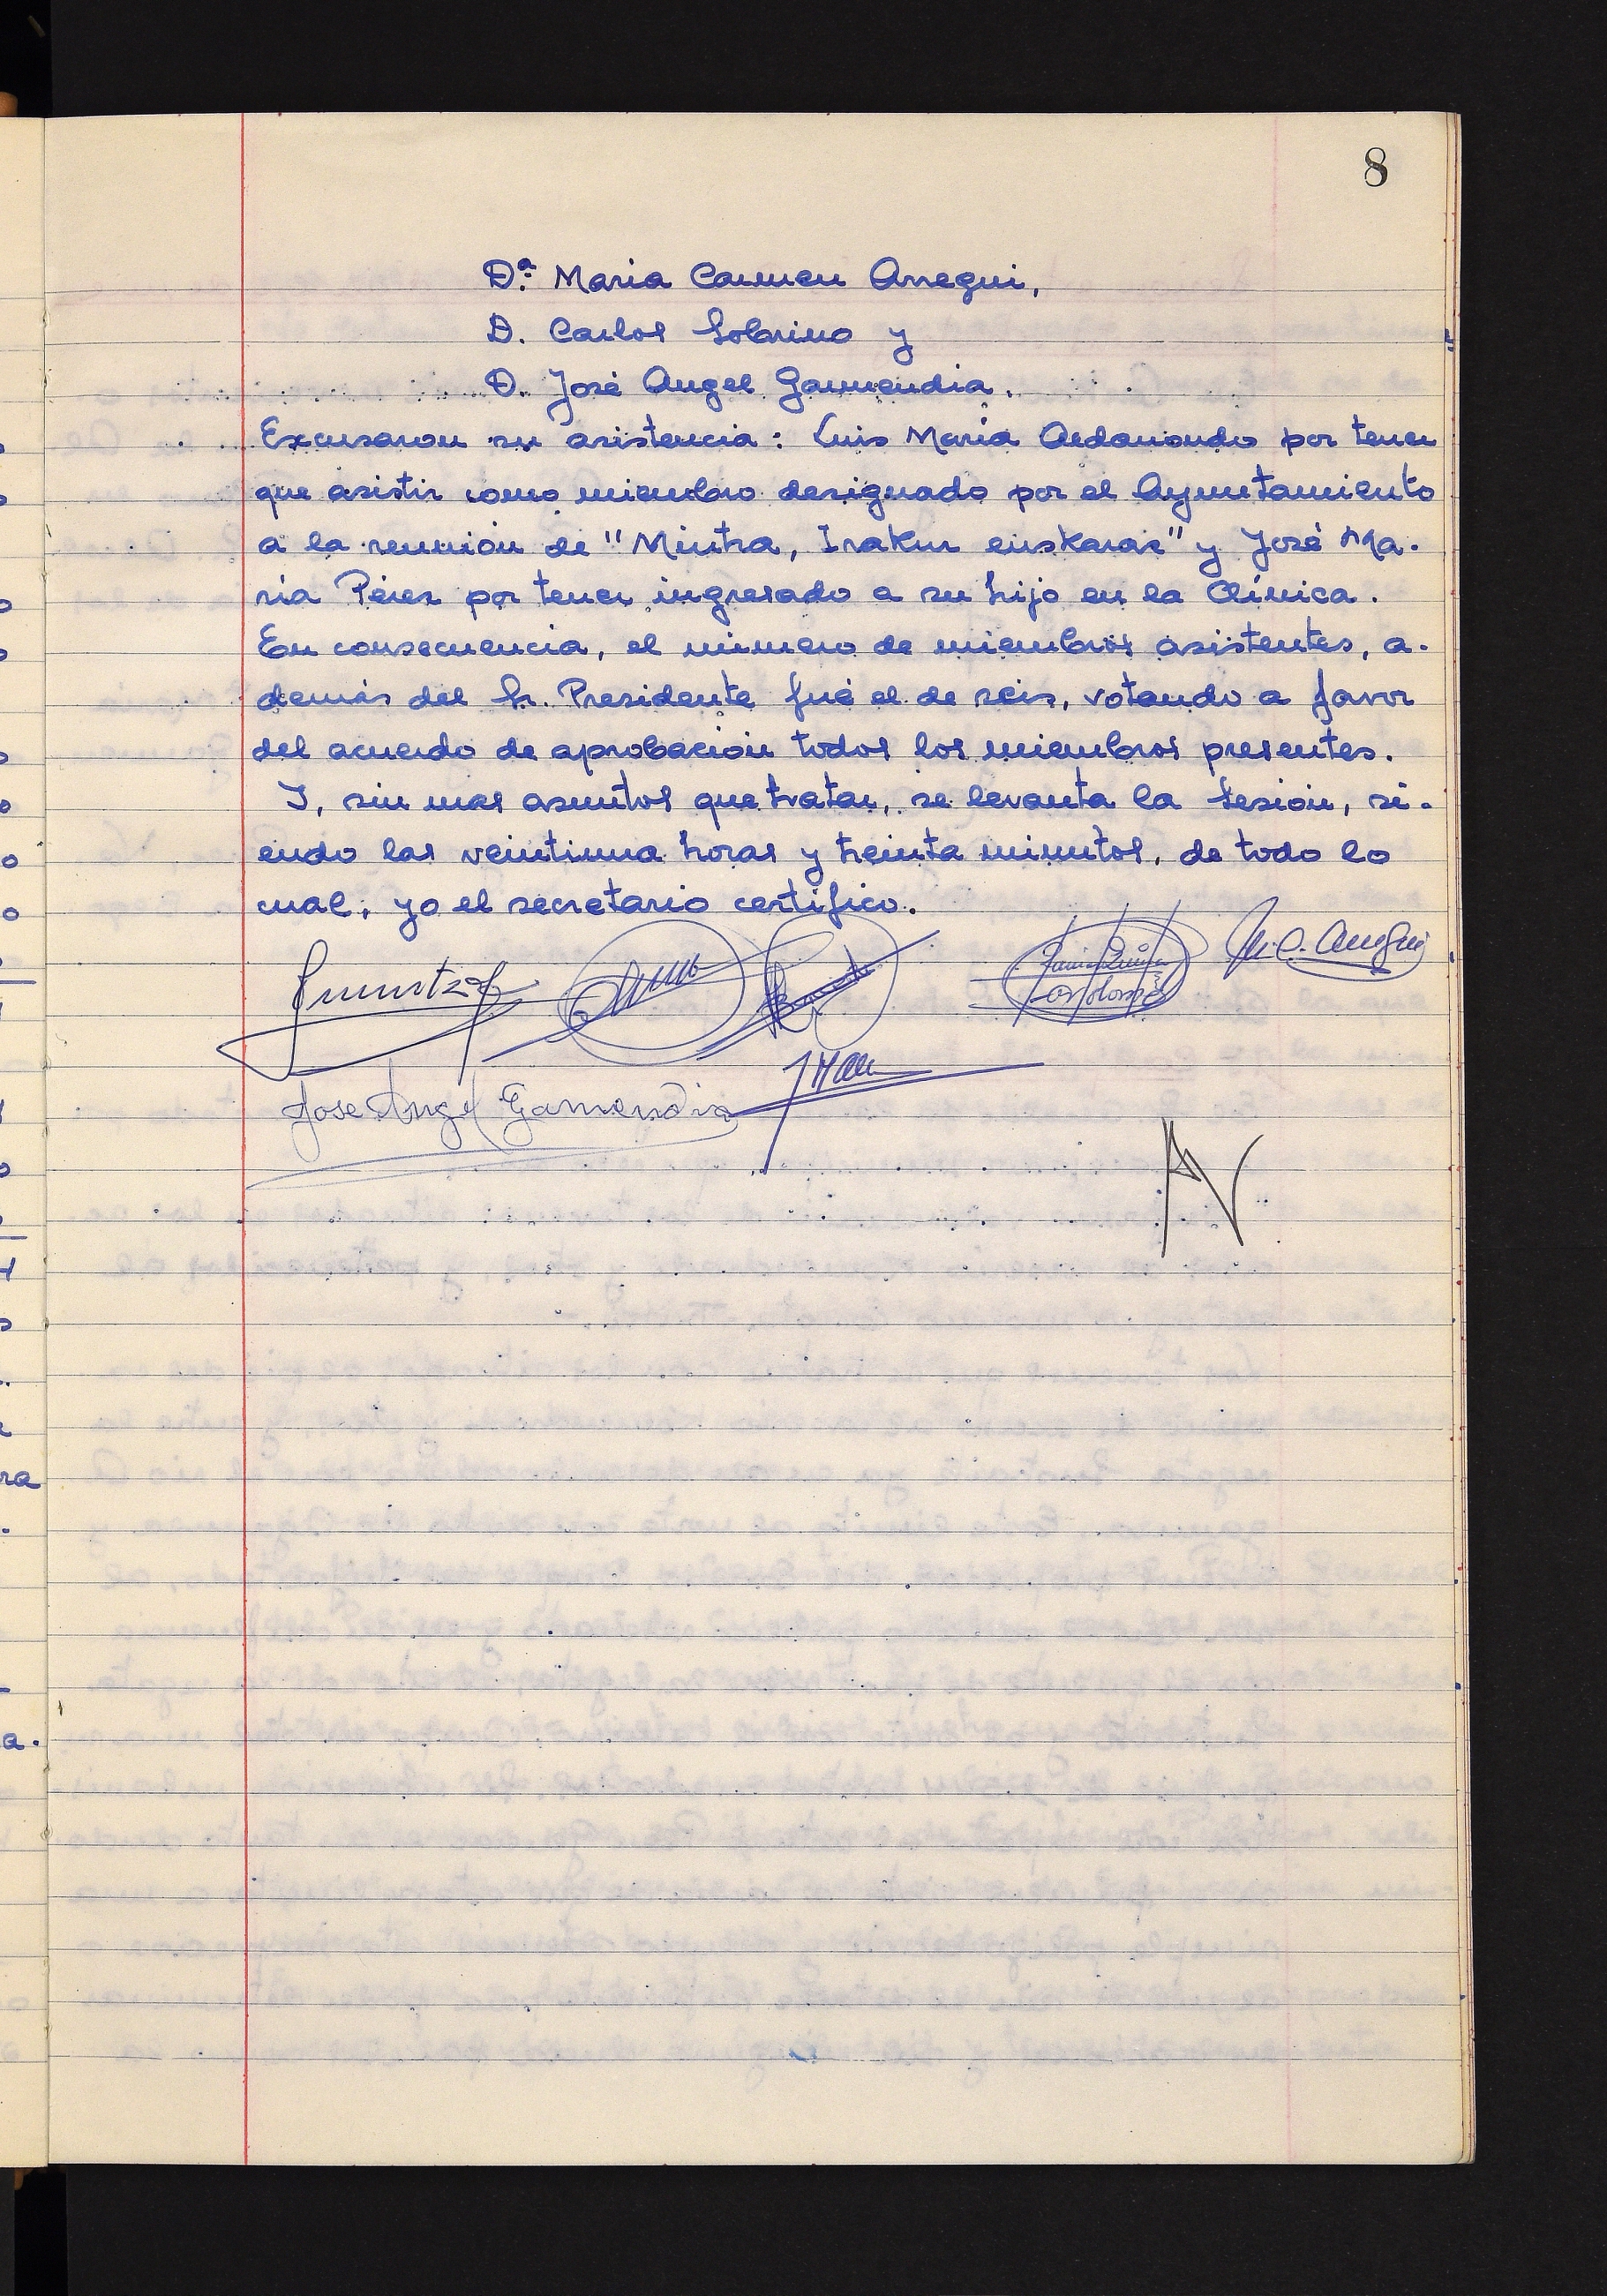 8
Dª Maria Carmen Arregui,
D. Carlos Sobrino y
D. José Angel Garmendia.
Excusaron su asistencia: Luis María Aldanondo por tener
que asistir como miembro designado por el Ayuntamiento
a la reunión de "Mintza, Irakur euskaraz" y José Ma-
ría Pérez por tener ingresado a su hijo en la Clínica.
En consecuencia, el número de miembros asistentes, a-
demás del Sr. Presidente fué el de seis, votando a favor
del acuerdo de aprobación todos los miembros presentes.
Y, sin mas asuntos que tratar, se levanta la sesión, si-
endo las veintiuna horas y treinta minutos, de todo lo
cual, yo el secretario certifico.
M.C. Arregui
Jose Angel Garmendia